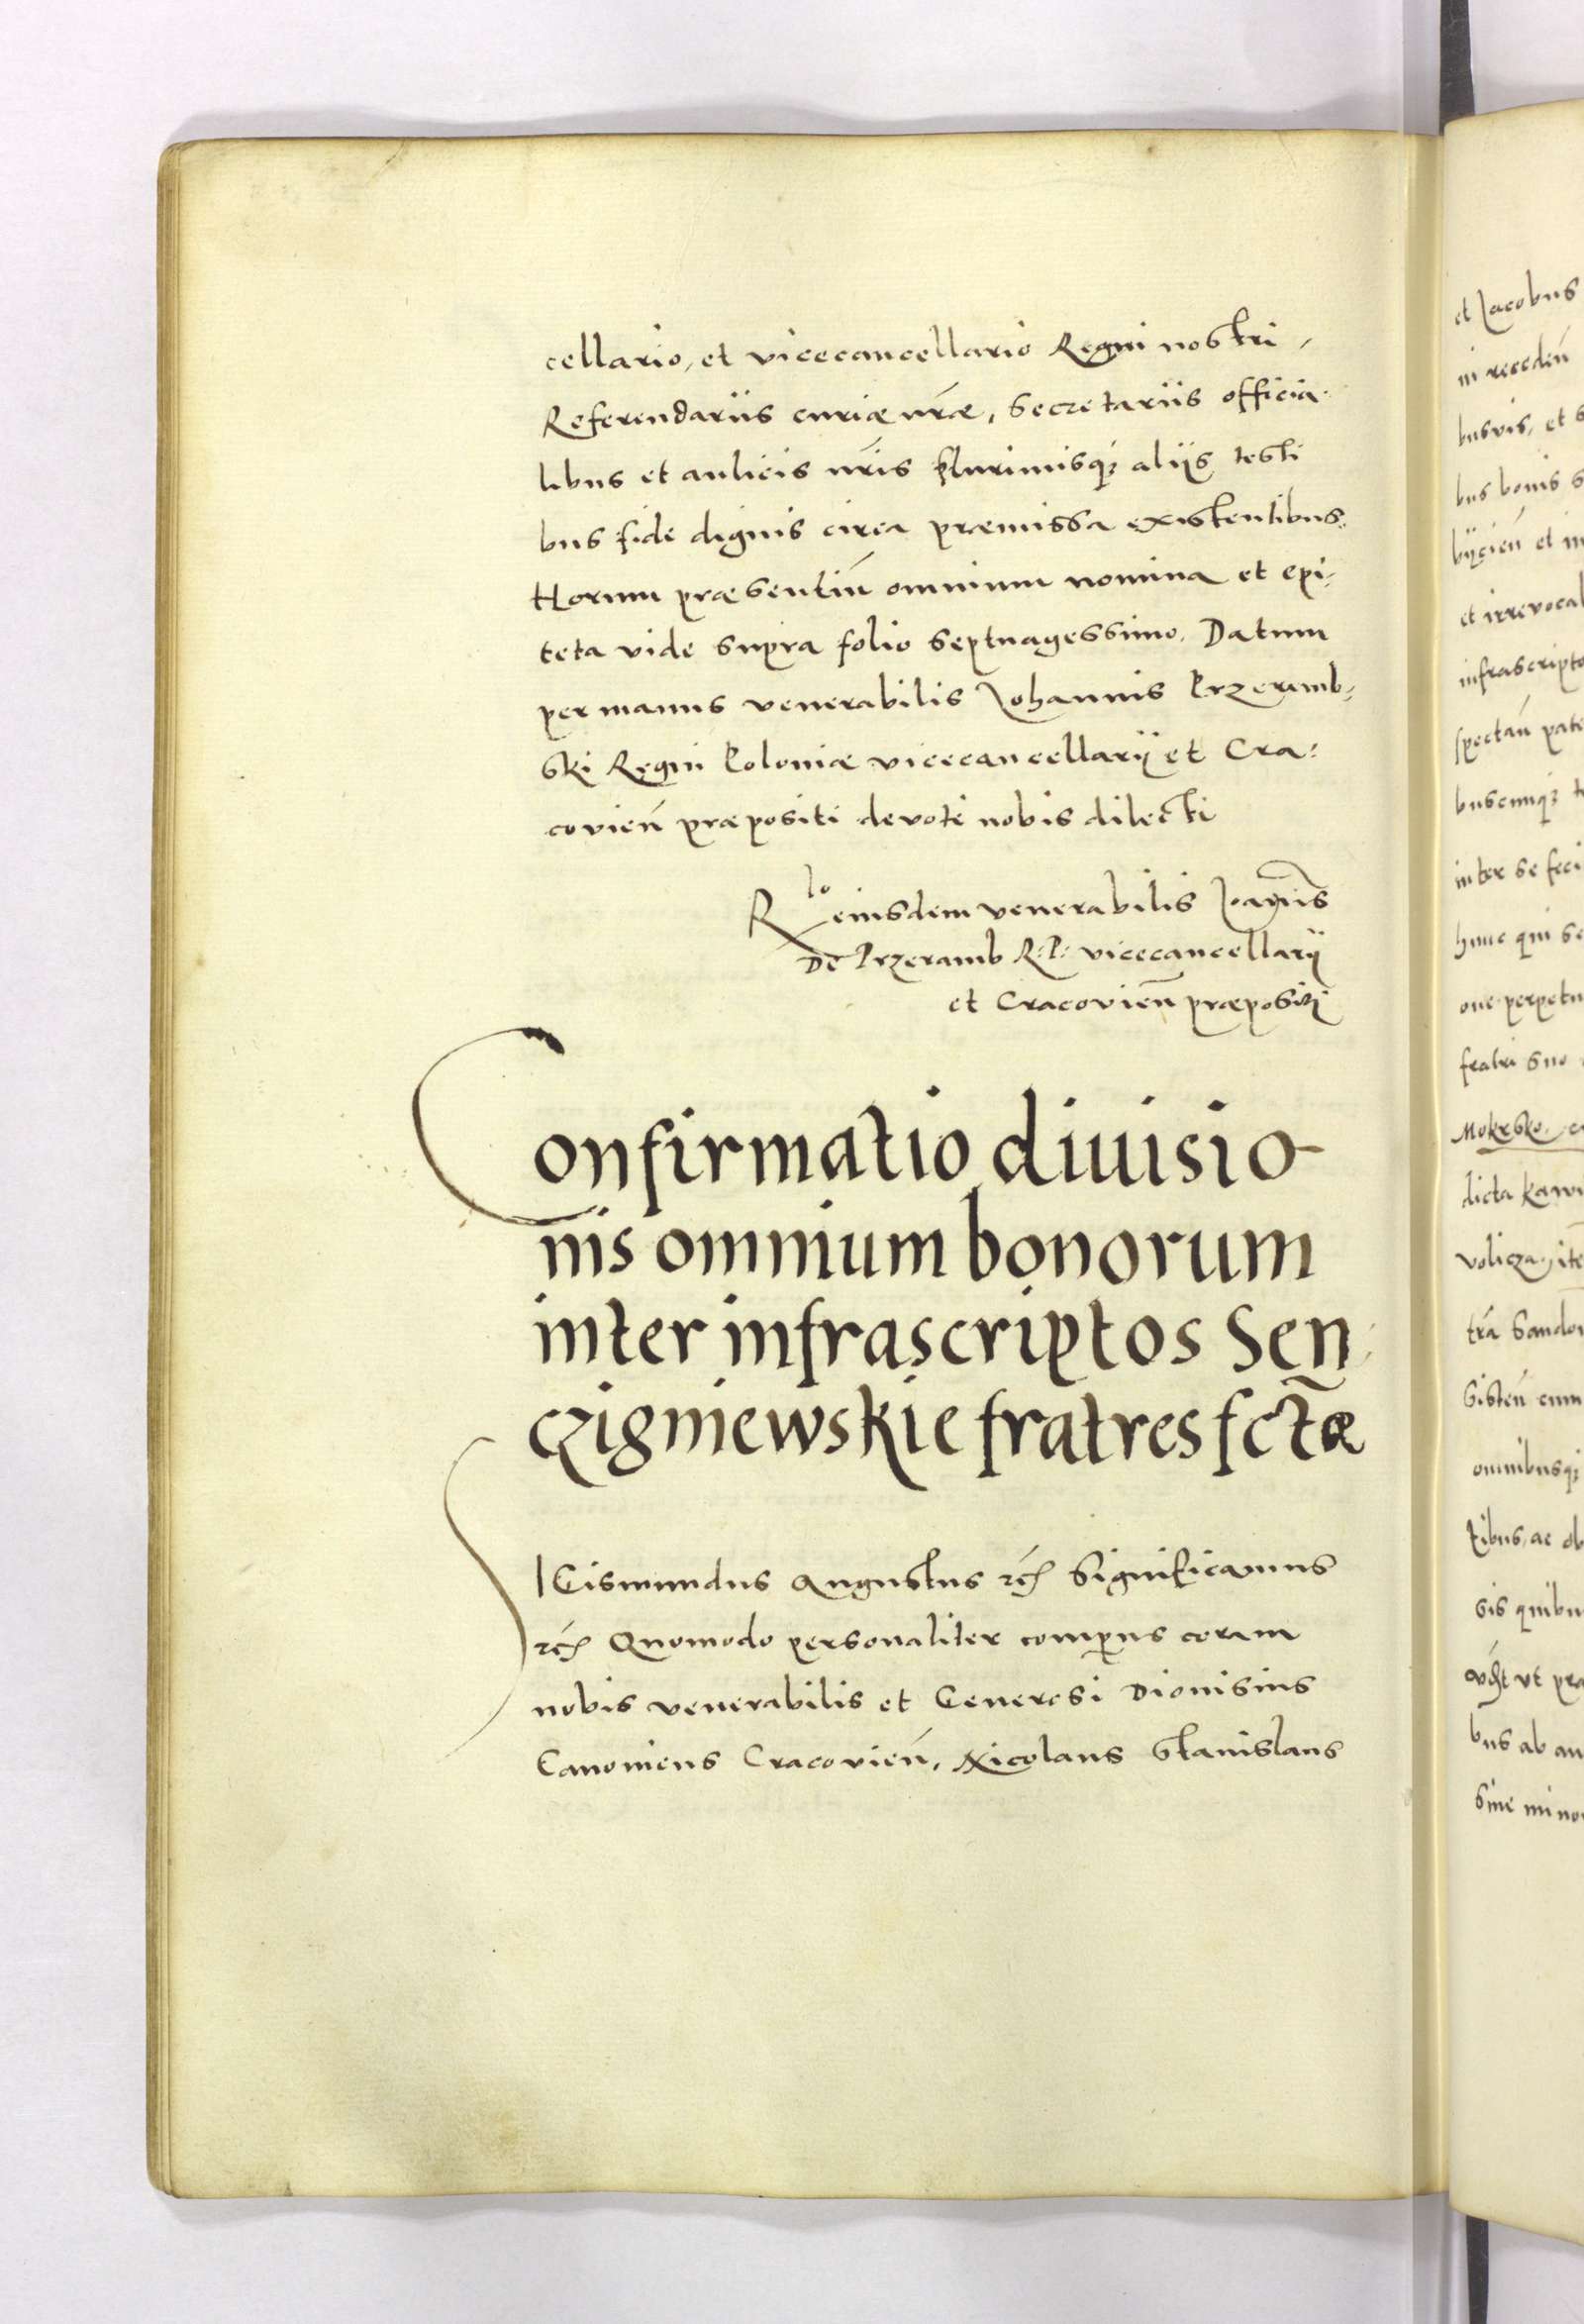 cellario, et vicecancellario Regni nostri,
Referendariis curiæ nr̃æ, Secretariis officia-
libus et aulicis nr̃is plurimisq; aliis testi
bus fide dignis circa præmissa existentibus.
Horum præsentiũ omnium nomina et epi-
teta vide supra folio septuagessimo. Datum
per manus venerabilis Johannis Przeremb-
ski Regni Poloniæ vicecancellarij et Cra-
covien̄ præpositi devote nobis dilecti
Rlo eiusdem venerabilis Joañis
De Przeramb R. P. vicecancellarij
et Cracovien̄ præpositi
Confirmatio diuisio-
nis omnium bonorum
inter infrascriptos Sen-
czigniewskie fratres fct̃æ
SIGismundus Augustus rc̃ Significamus
rc̃ Quomodo personaliter comperus coram
nobis venerabilis et Generosi Dionisius
Canonicus Cracovien̄, Nicolaus Stanislaus
et Jacobus
ni receden̄
busvis, et s
bus bonis s
bijcien̄ et in
et irrevocal
infrascripto
spectan̄ pate
buscunq; t
inter se feci
hunc qui se
one perpetu
fratri suo
Mokrsko
dicta kawi
volicza, ite
tr̃a Sandom
sisten̄ cum
omnibusq;
tibus, ac ob
sis quibu
ut pra
bus ab an
sine mino